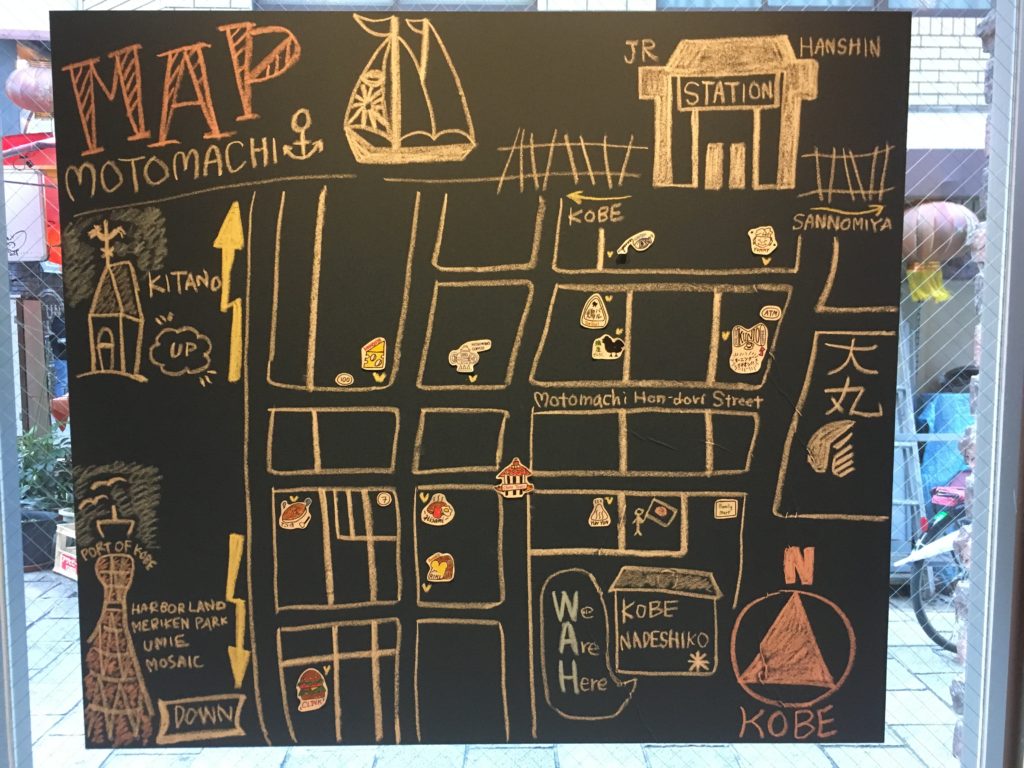 MAP
MOTOMACHI
JR
HANSHIN
STATION
KOBE
SANNOMIYA
KITANO
UP
YUMMY
ATM
100
Motomachi Hon-dori Street
大丸
7
Family Mart
PORT OF KOBE
HARBOR LAND
MERIKEN PARK
UMIE
MOSAIC
DOWN
We
Are
Here
KOBE
NADESHIKO
N
KOBE